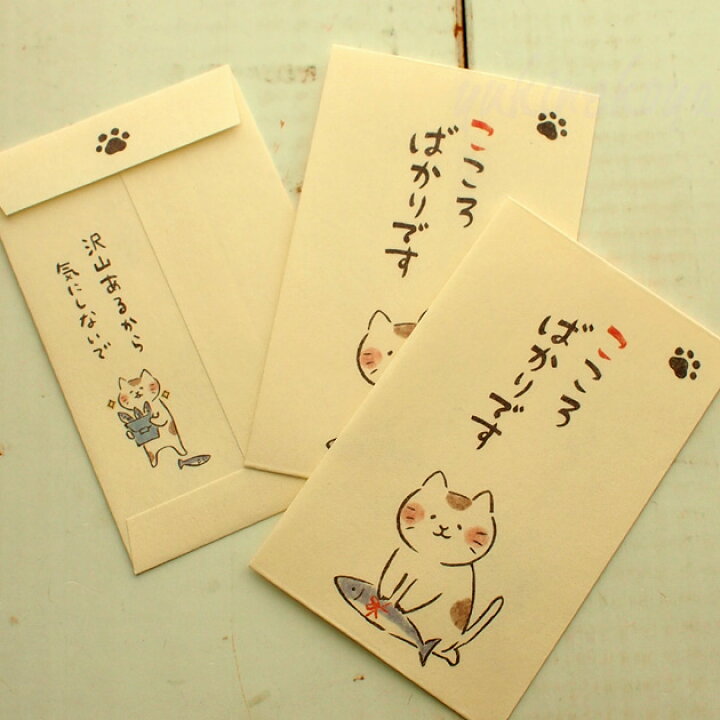 沢山あるから
気にしないで
こころ
ばかりです
こころ
ばかりです